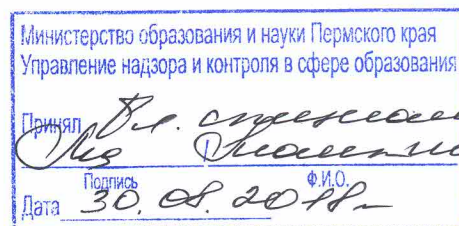 Министерство образования и науки Пермского края
Управление надзора и контроля в сфере образования
Принял Вл. специал
Подпись Ф.И.О.
Дата 30.08.2018